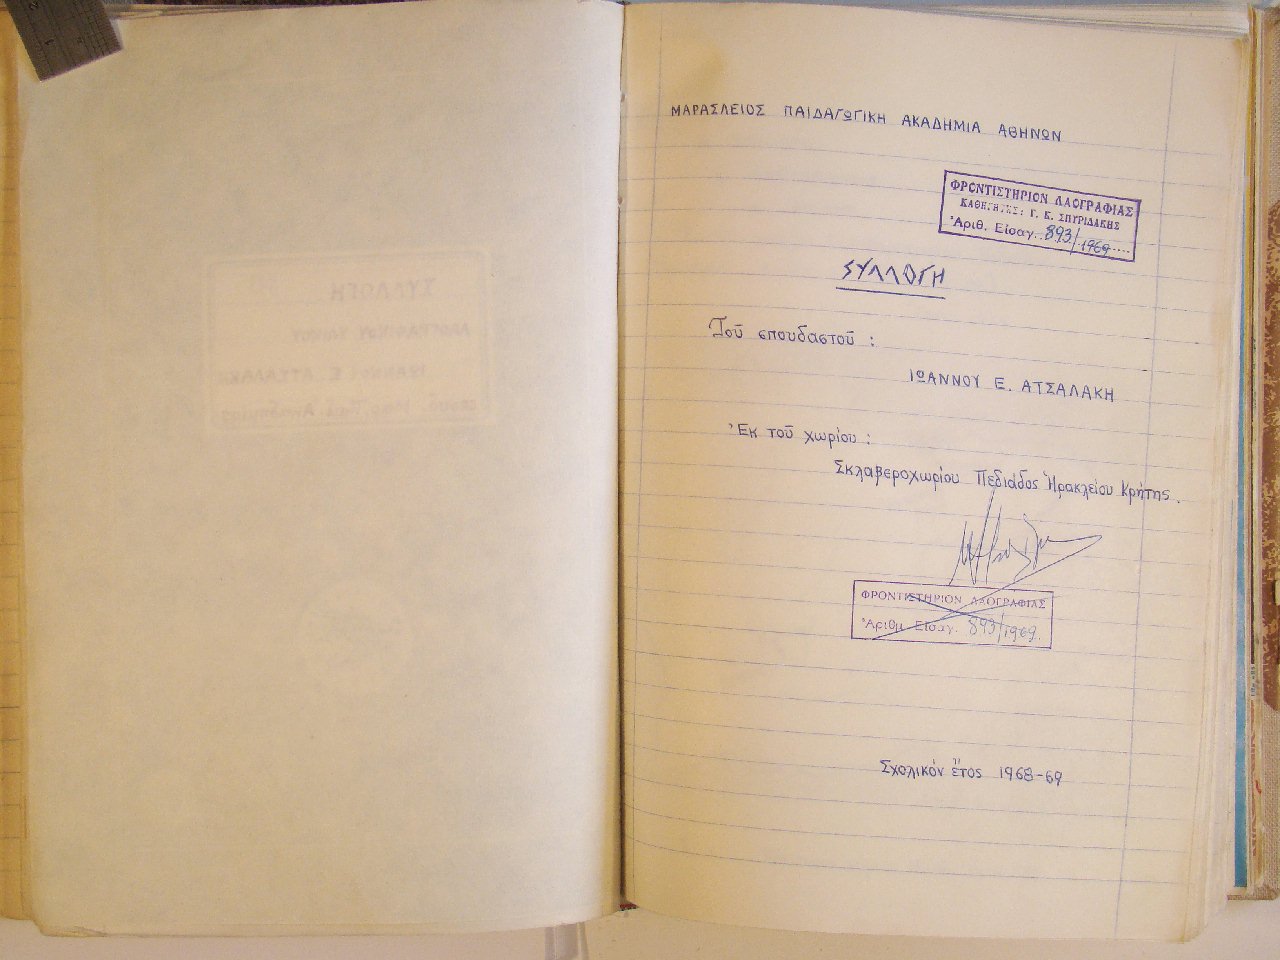 ΜΑΡΑΣΛΕΙΟΣ ΠΑΙΔΑΓΩΓΙΚΗ ΑΚΑΔΗΜΙΑ ΑΘΗΝΩΝ
ΦΡΟΝΤΙΣΤΗΡΙΟΝ ΛΑΟΓΡΑΦΙΑΣ
ΚΑΘΗΓΗΤΗΣ: Γ. Κ. ΣΠΥΡΙΔΑΚΗΣ
Ἀριθ. Εἰσαγ. 893/1969
ΣΥΛΛΟΓΗ
Τοῦ σπουδαστοῦ :
ΙΩΑΝΝΟΥ Ε. ΑΤΣΑΛΑΚΗ
Ἐκ τοῦ χωρίου :
Σκλαβεροχωρίου Πεδιάδος Ἡρακλείου Κρήτης.
ΦΡΟΝΤΙΣΤΗΡΙΟΝ ΛΑΟΓΡΑΦΙΑΣ
Ἀριθμ. Εἰσαγ. 893/1969.
Σχολικόν ἔτος 1968-69